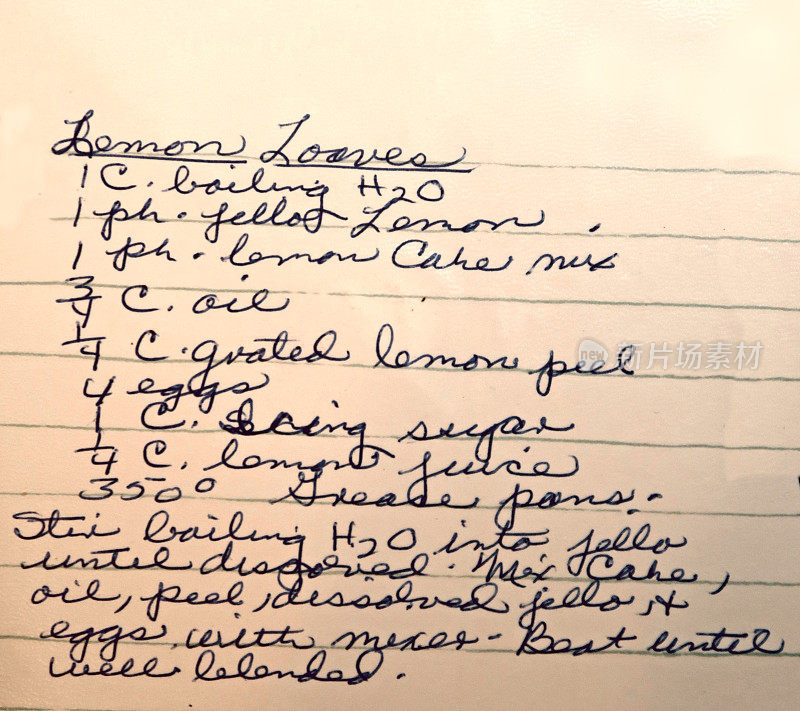 Lemon Loaves
1 C. boiling H2O
1 pk. jello Lemon
1 pk. lemon Cake mix
3/4 C. oil
1/4 C. grated lemon peel
4 eggs
1 C. Icing sugar
1/4 C. lemon juice
350° Grease pans.
Stir boiling H2O into jello
until dissolved. Mix Cake,
oil, peel, dissolved jello, +
eggs with mixer - Beat until
well blended.
new 新片场素材